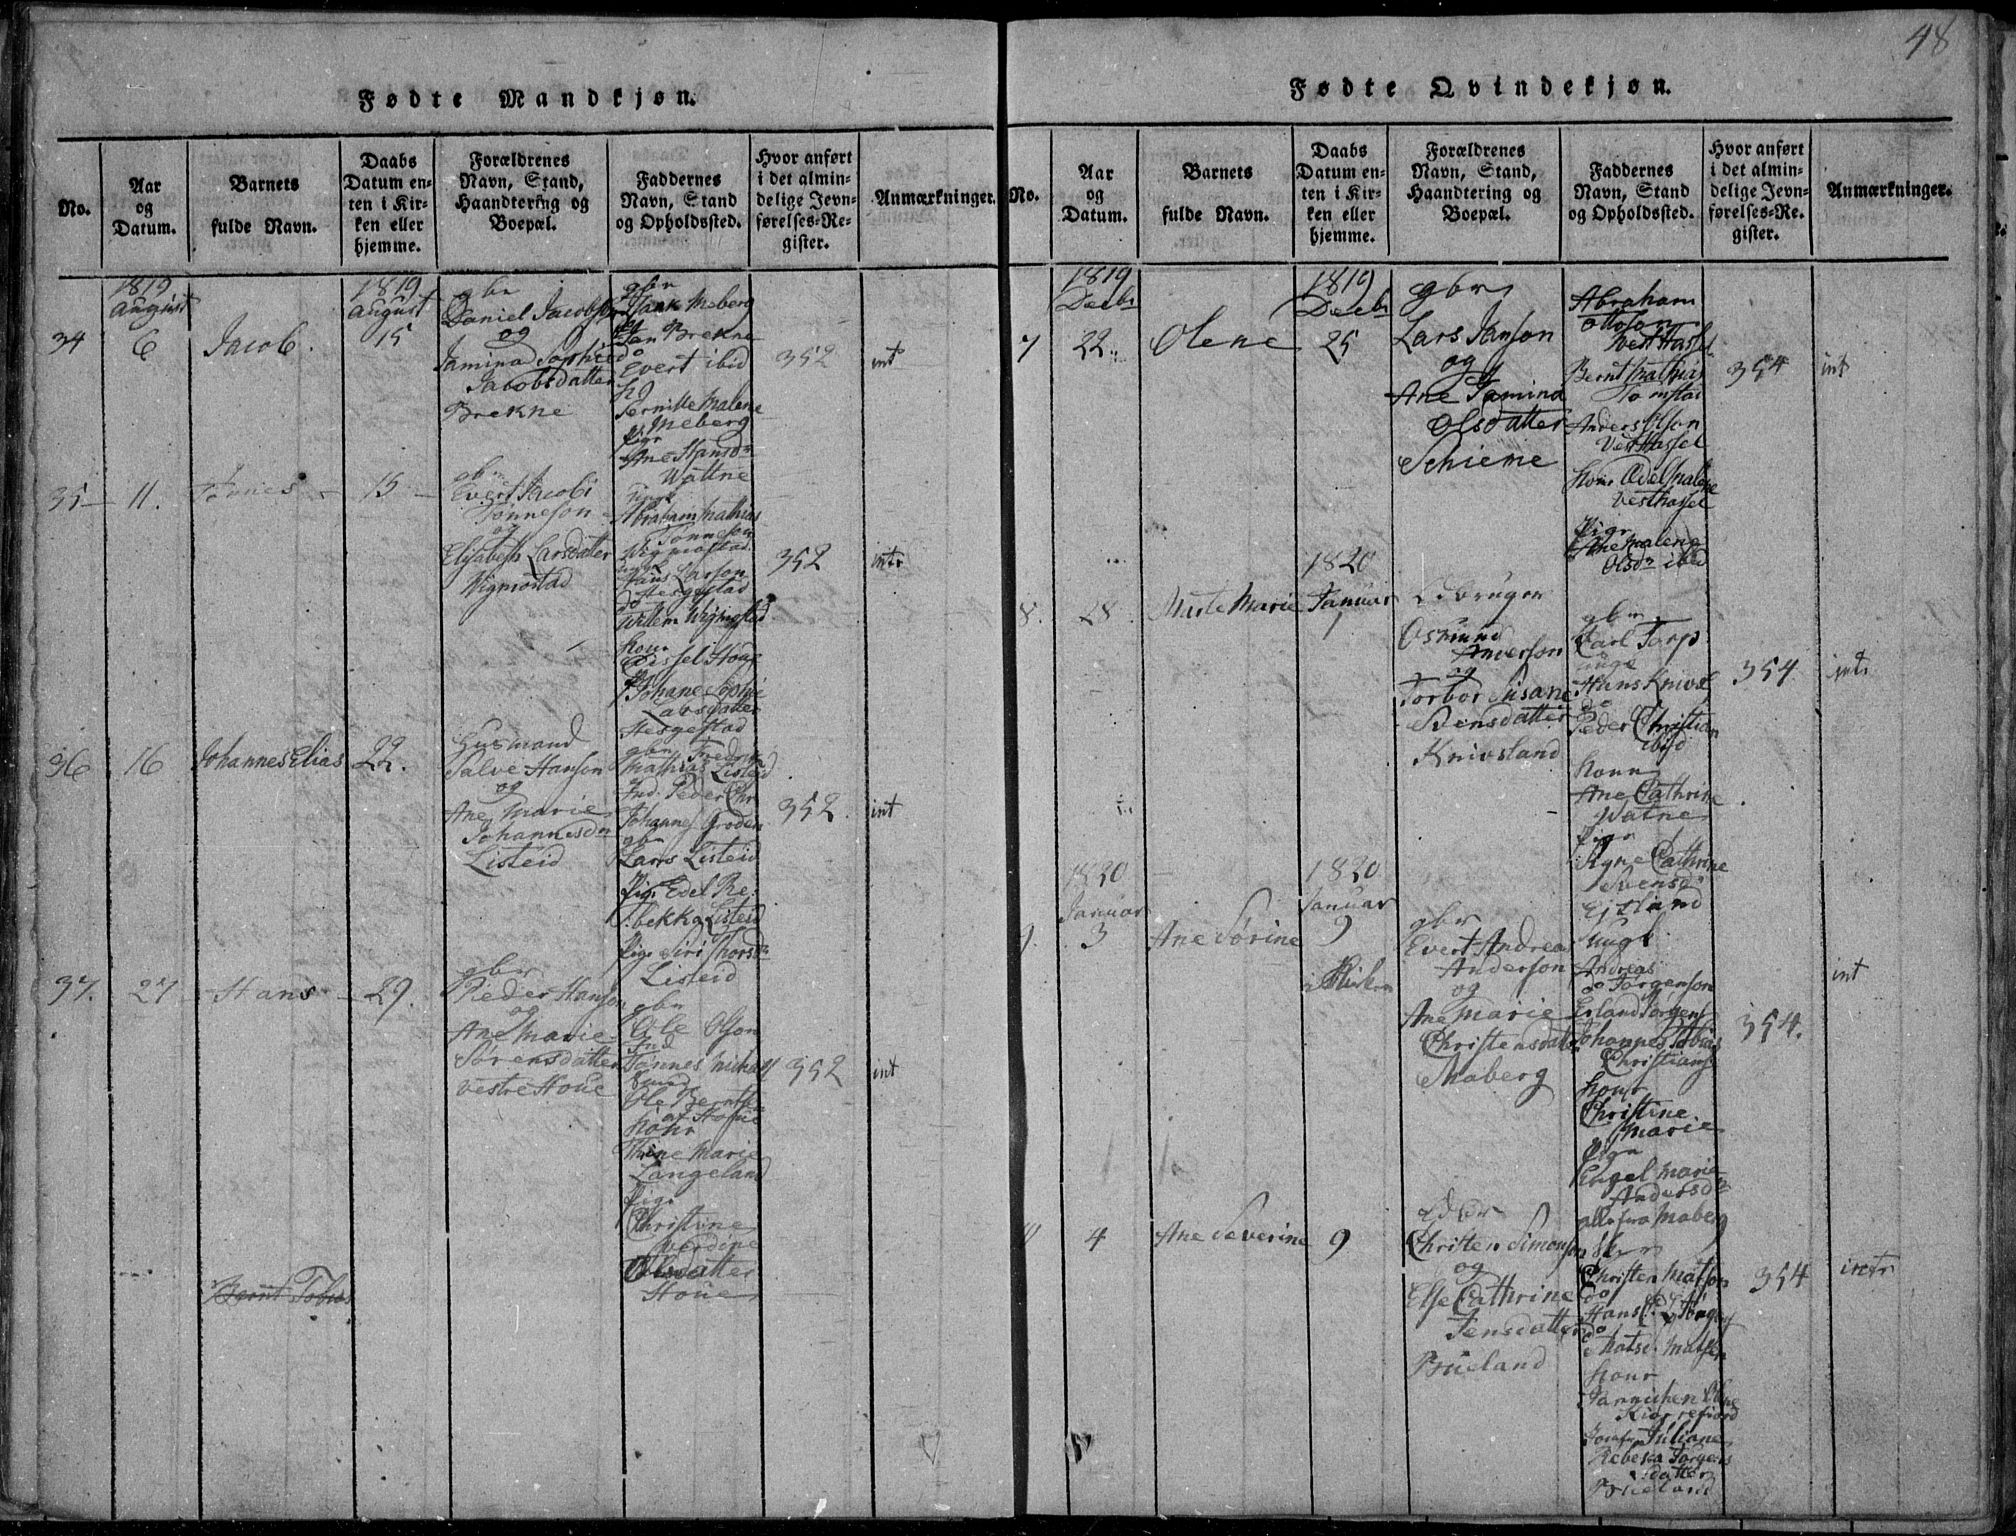 48
Fødte Mandkjøn.
No.
Aar
og
Datum.
Barnets
fulde Navn.
Daabs
Datum en-
ten i Kir-
ken eller
hjemme.
Forældrenes
Navn, Stand,
Haandtering og
Boepæl.
Faddernes
Navn, Stand
og Opholdssted.
Hvor anført
i det almin-
delige Jevn-
førelses-Re-
gister.
Anmærkninger.
34
1819
August
6
Jacob.
1819
August
15
gbr
Daniel Jacobson
og
Jamina Sophie
Jacobsdatter
Brekne
gbr
Isaak Meberg
Jan Brekne
do
Evert ibid
Pernille Malene
Meberg
Pigr
Ane Hansdr
Wattne
352
int
35
11.
Tønnes
15
gbr
Evert Jacob
Tønneson
og
Elisabeth Larsdatter
Wigmostad
Abraham Mathias
Tønneson
Wigmostad
Hans Larson
Hesgestad
do
Willem Wigmostad
Konr
Sissel Houe
Johane Sophie
Larsdatter
Hesgestad
352
intr
36
16
Johannes Elias
22.
Husmand
Salve Hanson
og
Ane Marie
Johannesdr
Listeid
gbr
Mathias Listeid
Ind. Peder Chr
Johannes Groden
gbr
Lars Listeid
Pigr Edel Re-
bekka Listeid
Pigr Siri Thorsdr
Listeid
352.
int
37.
27
Hans
29.
gbr
Peder Hanson
og
Ane Marie
Sørensdatter
vestre Houe
gbr
Ole Olson
Ind
Tønnes Michall
Ole Berntsen
af Houe
Konr
Thrine Marie
Langeland
Pigr
Christine
Verdine
Olsdatter
Houe
352
int
Bernt Tobias
Fødte Qvindekjøn.
No.
Aar
og
Datum.
Barnets
fulde Navn.
Daabs
Datum en-
ten i Kir-
ken eller
hjemme.
Forældrenes
Navn, Stand,
Haandtering og
Boepæl.
Faddernes
Navn, Stand
og Opholdssted.
Hvor anført
i det almin-
delige Jevn-
førelses-Re-
gister.
Anmærkninger.
7
1819
Decbr
22.
Olene
1819
Decbr
25
gbr
Lars Janson
og
Ane Jamina
Olsdatter
Schieme
Abraham
Ottoson
Vest Hassel
Bernt Mathias
Tomstad
Anders Olson
Vest Hassel
Konr Ædel Malene
Vesthassel
Pigr
Ane Malene
Olsdr ibid
354
int
8.
28
Marie
1820
Januar
1
Osmund
Anderson
og
Torbor Susane
Svensdatter
Knivsland
gbr
Carl Torp
unge
Hans Knivsl
do
Peder Christian
ibid
Konr
Ane Cathrine
Watne
Pigr
Agne Cathrine
Svensdr
354
intr
9.
1820
Januar
3
Ane Sørine
1820
Januar
9
i Kirken
gbr
Evert Andreas
Anderson
og
Ane Marie
Christensdatr
Maberg
Ungk
Andreas
Jørgenson
do
Erland Jørgens
Johannes Tobias
Christians
Konr
Christine
Marie
Pigr
Engel Marie
Andersdr
alle fra Maberg
354.
int
4
Ane Severine
9
Christen Simonson
og
Else Cathrine
Jensdatter
Brueland
Christen Matson
do
Hans
do
Mats Matsen
Konr
Jannichen
Juliane
Rebeka Jørgens
datter
Brueland
354
intr